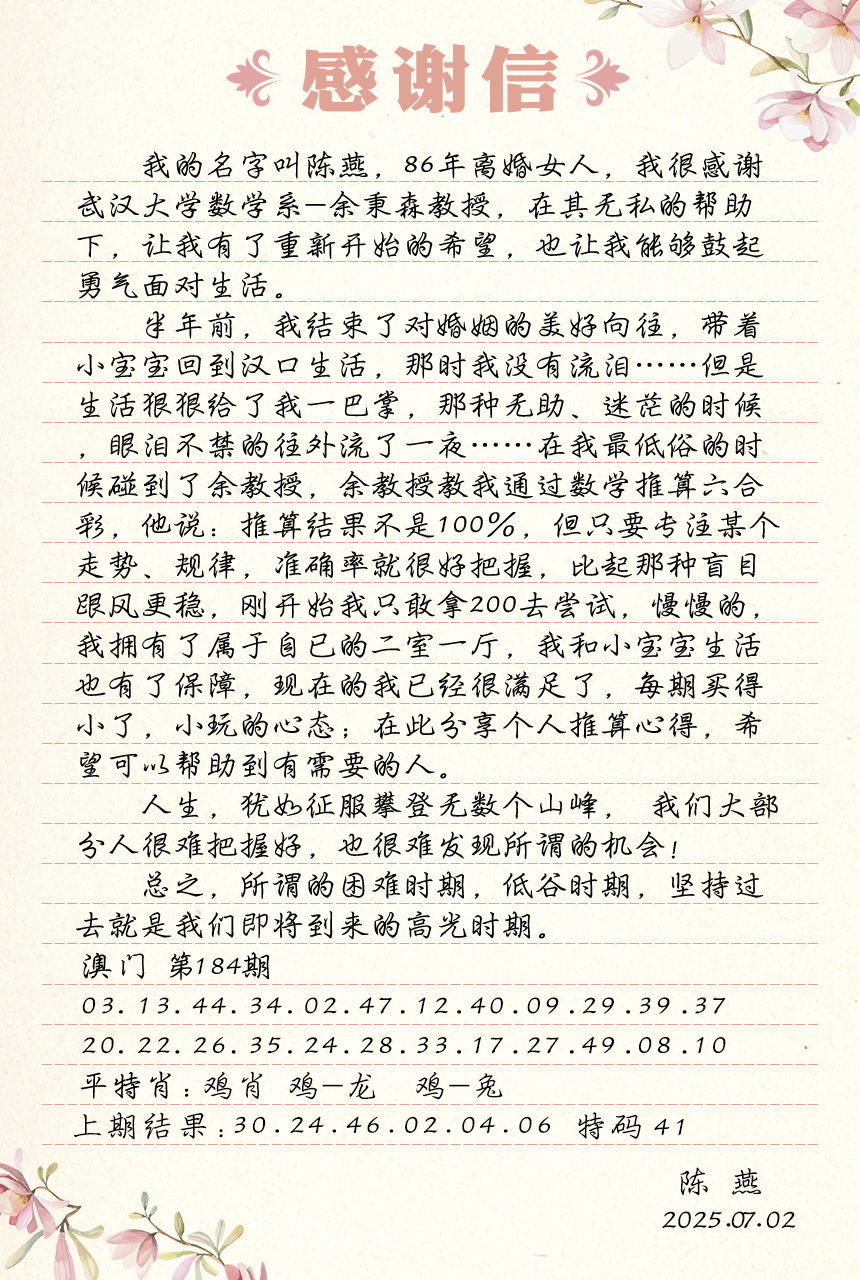 感谢信
我的名字叫陈燕，86年离婚女人，我很感谢
武汉大学数学系—余秉森教授，在其无私的帮助
下，让我有了重新开始的希望，也让我能够鼓起
勇气面对生活。
半年前，我结束了对婚姻的美好向往，带着
小宝宝回到汉口生活，那时我没有流泪……但是
生活狠狠给了我一巴掌，那种无助、迷茫的时候
，眼泪不禁的往外流了一夜……在我最低俗的时
候碰到了余教授，余教授教我通过数学推算六合
彩，他说：推算结果不是100%，但只要专注某个
走势、规律，准确率就很好把握，比起那种盲目
跟风更稳，刚开始我只敢拿200去尝试，慢慢的，
我拥有了属于自已的二室一厅，我和小宝宝生活
也有了保障，现在的我已经很满足了，每期买得
小了，小玩的心态；在此分享个人推算心得，希
望可以帮助到有需要的人。
人生，犹如征服攀登无数个山峰， 我们大部
分人很难把握好，也很难发现所谓的机会！
总之，所谓的困难时期，低谷时期，坚持过
去就是我们即将到来的高光时期。
澳门 第184期
03.13.44.34.02.47.12.40.09.29.39.37
20.22.26.35.24.28.33.17.27.49.08.10
平特肖：鸡肖 鸡—龙 鸡—兔
上期结果：30.24.46.02.04.06 特码 41
陈 燕
2025.07.02